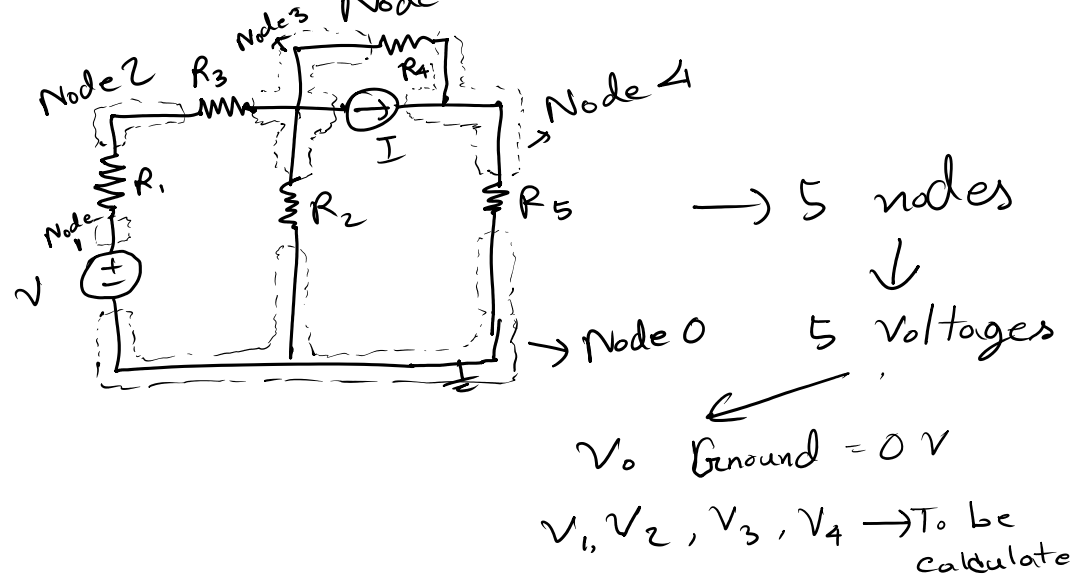 Node
Node3
Node 2
R3
R4
Node 4
I
R1
R2
R5
→ 5 nodes
Node 1
+
−
V
→ Node 0
5 Voltages
V0 Ground = 0 V
V1, V2, V3, V4 → To be
caldulate